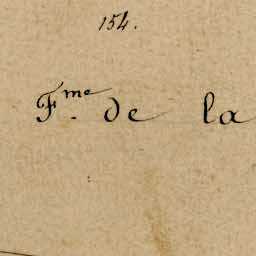 154.
F.me de la